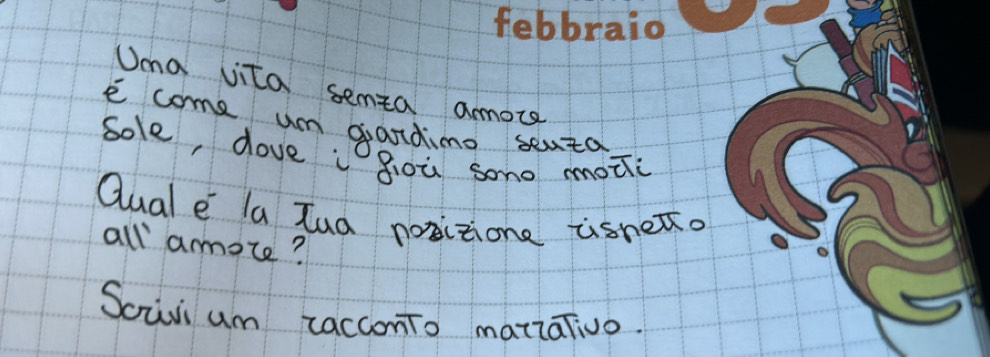 febbraio
Una vita senza amore
é come un giardino senza
sole, dove i fiori sono morti
Qual é la tua posizione rispetto
all'amore?
Scrivi un racconto narrativo.